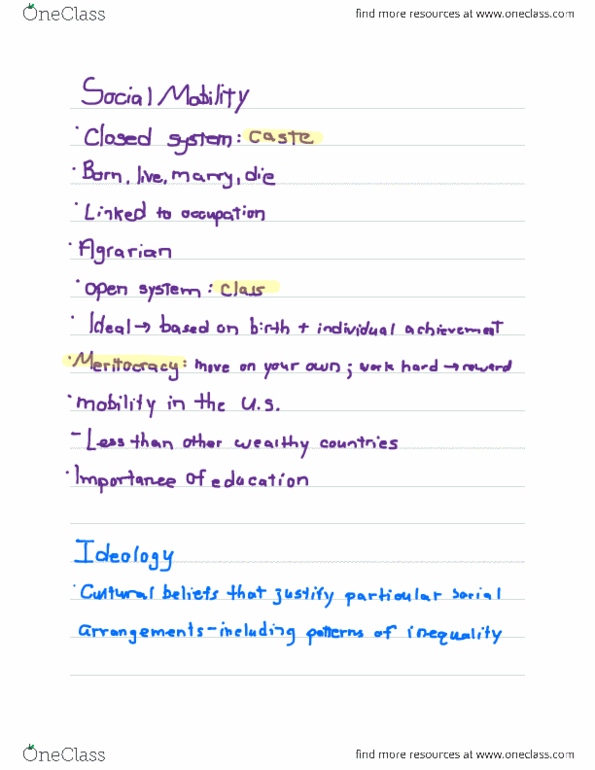 OneClass find more resources at www.oneclass.com
Social Mobility
• Closed system: caste
• Born, live, marry, die
• Linked to occupation
• Agrarian
• open system: class
• Ideal → based on birth + individual achievement
• Meritocracy: move on your own; work hard → reward
• mobility in the U.S.
- Less than other wealthy countries
• Importance of education
Ideology
• Cultural beliefs that justify particular social
arrangements - including patterns of inequality
OneClass find more resources at www.oneclass.com